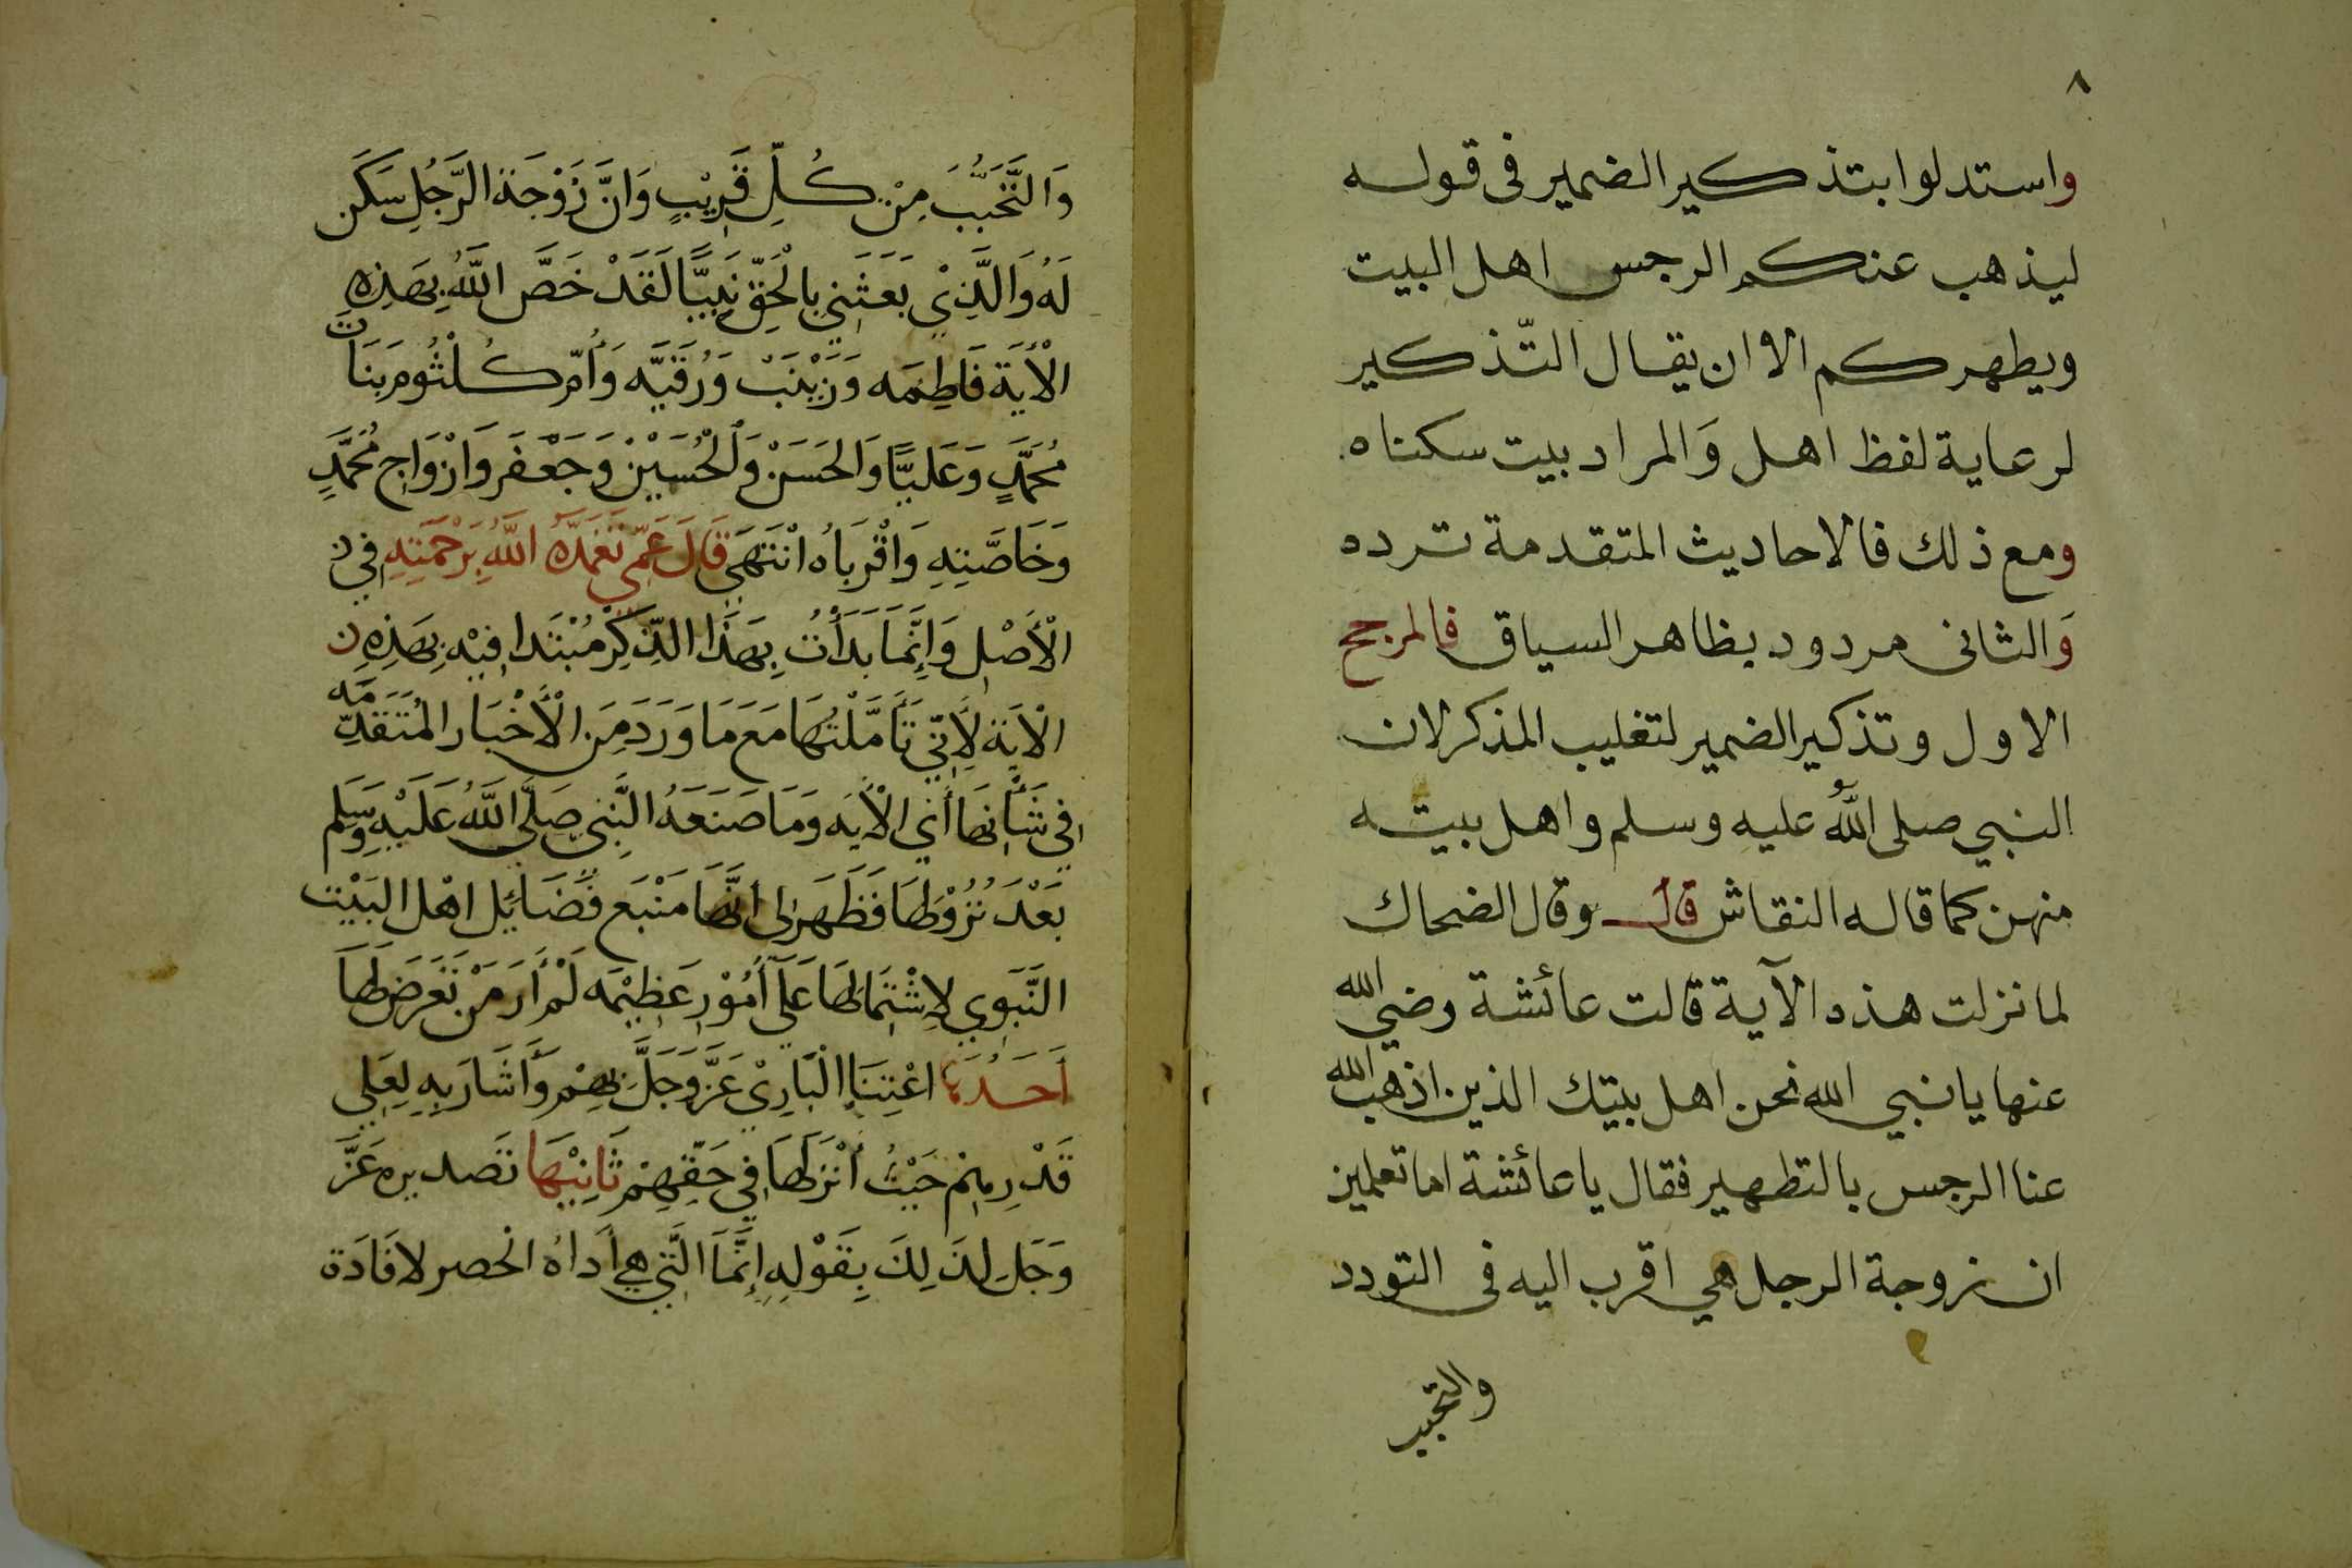 ٨
واستدلوا بتذكير الضمير فى قوله
ليذهب عنكم الرجس اهل البيت
ويطهركم الا ان يقال التّذكير
لرعاية لفظ اهل وَالمراد بيت سكناه
ومع ذلك فالاحاديث المتقدمة ترده
وَالثانى مردود بظاهر السياق فالمرجح
الاول وتذكير الضمير لتغليب المذكر لان
النبي صلى اللهُ عليه وسلم واهل بيته
منهن كما قاله النقاش قال وقال الضحاك
لما نزلت هذه الآية قالت عائشة رضي الله
عنها يا نبي الله نحن اهل بيتك الذين اذهب الله
عنا الرجس بالتطهير فقال يا عائشة اما تعلمين
ان زوجة الرجل هي اقرب اليه فى التودد
والتحبب
وَالتَّحَبُّبَ مِنْ كُلِّ قَرِيْبٍ وَانَّ زَوْجَة الرَّجُلِ سَكَن
لَهُ وَالَّذِيْ بَعَثَنِي بِالْحَقِّ نَبِيًّا لَقَدْ خَصَّ اللَّهُ بِهَذِهِ
الْأيَة فَاطِمَه وَزَيْنَبْ وَرُقَيَّه وَأُمّ كُلْثُوم بَنَات
مُحَمَّدٍ وَعَليًّا وَالحَسَنْ وَالْحُسَيْنْ وَجَعْفَر وَازْوَاج مُحَمَّدٍ
وَخَاصَّتِهِ وَاقْرِبَاهُ انْتَهَى قَالَ عَمِّي تَغَمَّدَهُ اللَّهُ بِرَحْمَتِهِ فِي
الْأَصْلِ وَإِنَّمَا بَدَأْتُ بِهَذَا الذِّكْر مُبْتَدا فِيْهِ بِهَذِهِ
الْايَة لِأَنِّي تَأَمَّلْتُهَا مَعَ مَا وَرَدَ مِنَ الْأَخْبَار المُتَقَدِّمَه
فِي شَأْنِهَا أَيِ الْأيَه وَمَا صَنَعَهُ النَّبِي صَلَّى اللَّهُ عَلَيْهِ وَسَلم
بَعْدَ نُزُوْلِهَا فَظَهَرَ لى أنَّهَا مَنْبَع فَضَائِل اهْل البَيْت
النَّبَوِي لِاشْتِمَالِهَا عَلَى أُمُوْرٍ عَظِيْمَه لَمْ أَرَ مَنْ تَعَرَضَ لَهَا
أَحَدُهَا اعْتِنَا الْبَارِيْ عَزَّ وَجَلَّ بِهِمْ وَأَشَارَ بِهِ لِعَلِي
قَدْرِهِمْ حَيْثُ أنْزَلَهَا فِي حَقِّهِمْ ثَانِيْهَا تَصديره عَزَّ
وَجَل لِذَلِكَ بِقَوْلِهِ إِنَّمَا الَّتِي هِي أَدَاهُ الحصر لافَادَة